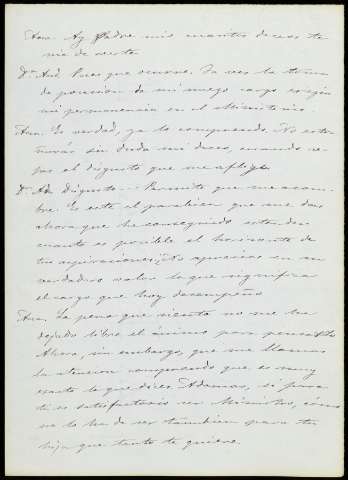 Aur. Ay Padre mio cuantos deseos te
nia de verte
Dn And. Pues que ocurre. Ya ves la toma
de posesion de mi nuevo cargo exigia
mi permanencia en el Ministerio.
Aur. Es verdad, ya lo comprendo. No estra
ñarás sin duda mi deseo, cuando se-
pas el disgusto que me aflije
Dn An. Disgusto... Permite que me asom-
bre. Es este el parabien que me das
ahora que he conseguido estender
cuanto es posible el horizonte de
tus aspiraciones, ¿No aprecias en su
verdadero valor lo que significa
el cargo que hoy desempeño
Aur. La pena que siento no me ha
dejado libre el ánimo para pensarlo
Ahora, sin embargo, que me llamas
la atencion comprendo que es muy
exacto lo que dices. Ademas, si para
ti es satisfactorio ser Ministro, cómo
no lo ha de ser tambien para tu
hija que tanto te quiere.